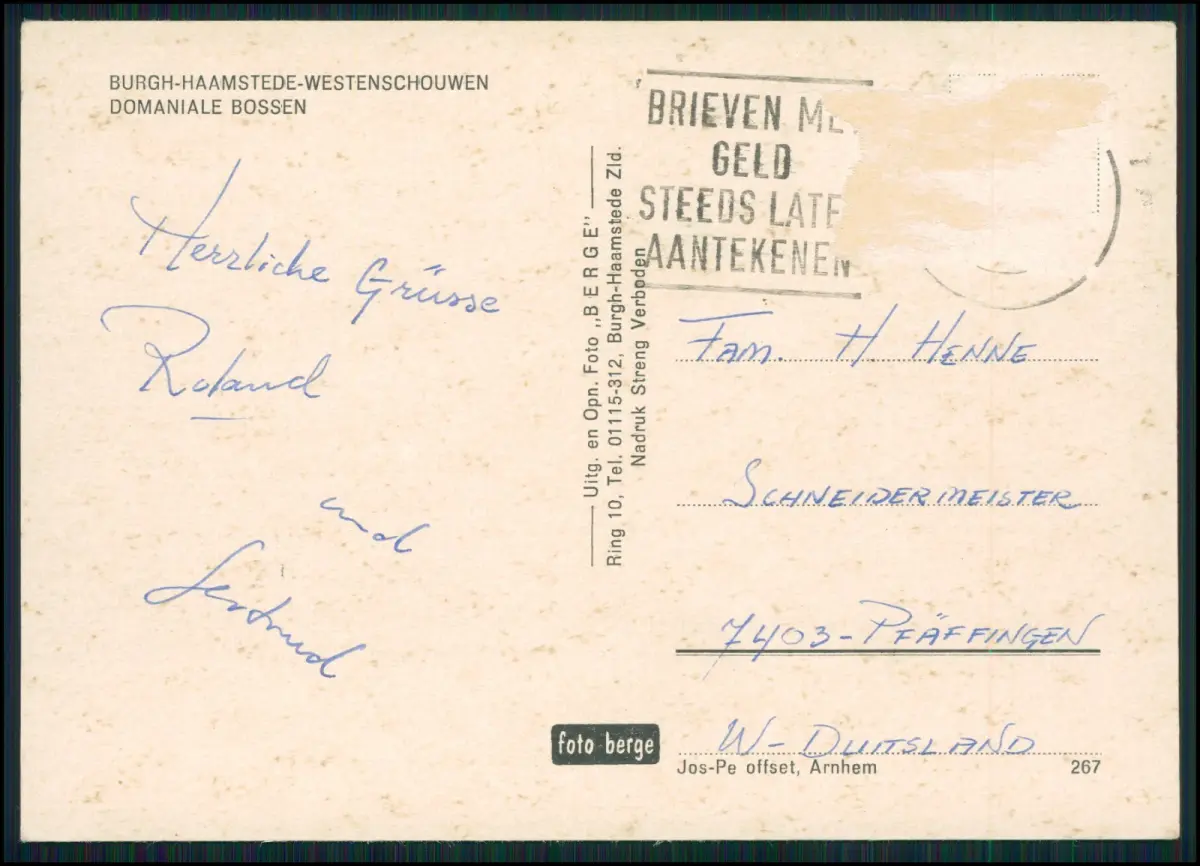 BURGH-HAAMSTEDE-WESTENSCHOUWEN
DOMANIALE BOSSEN
Herrliche Grüsse
Roland
und
Gertrud
Uitg. en Opn. Foto „BERGE”
Ring 10, Tel. 01115-312, Burgh-Haamstede Zld.
Nadruk Streng Verboden
BRIEVEN ME
GELD
STEEDS LATE
AANTEKENEN
Fam. H. HENNE
SCHNEIDERMEISTER
7403-PFÄFFINGEN
W-DUITSLAND
foto berge
Jos-Pe offset, Arnhem 267